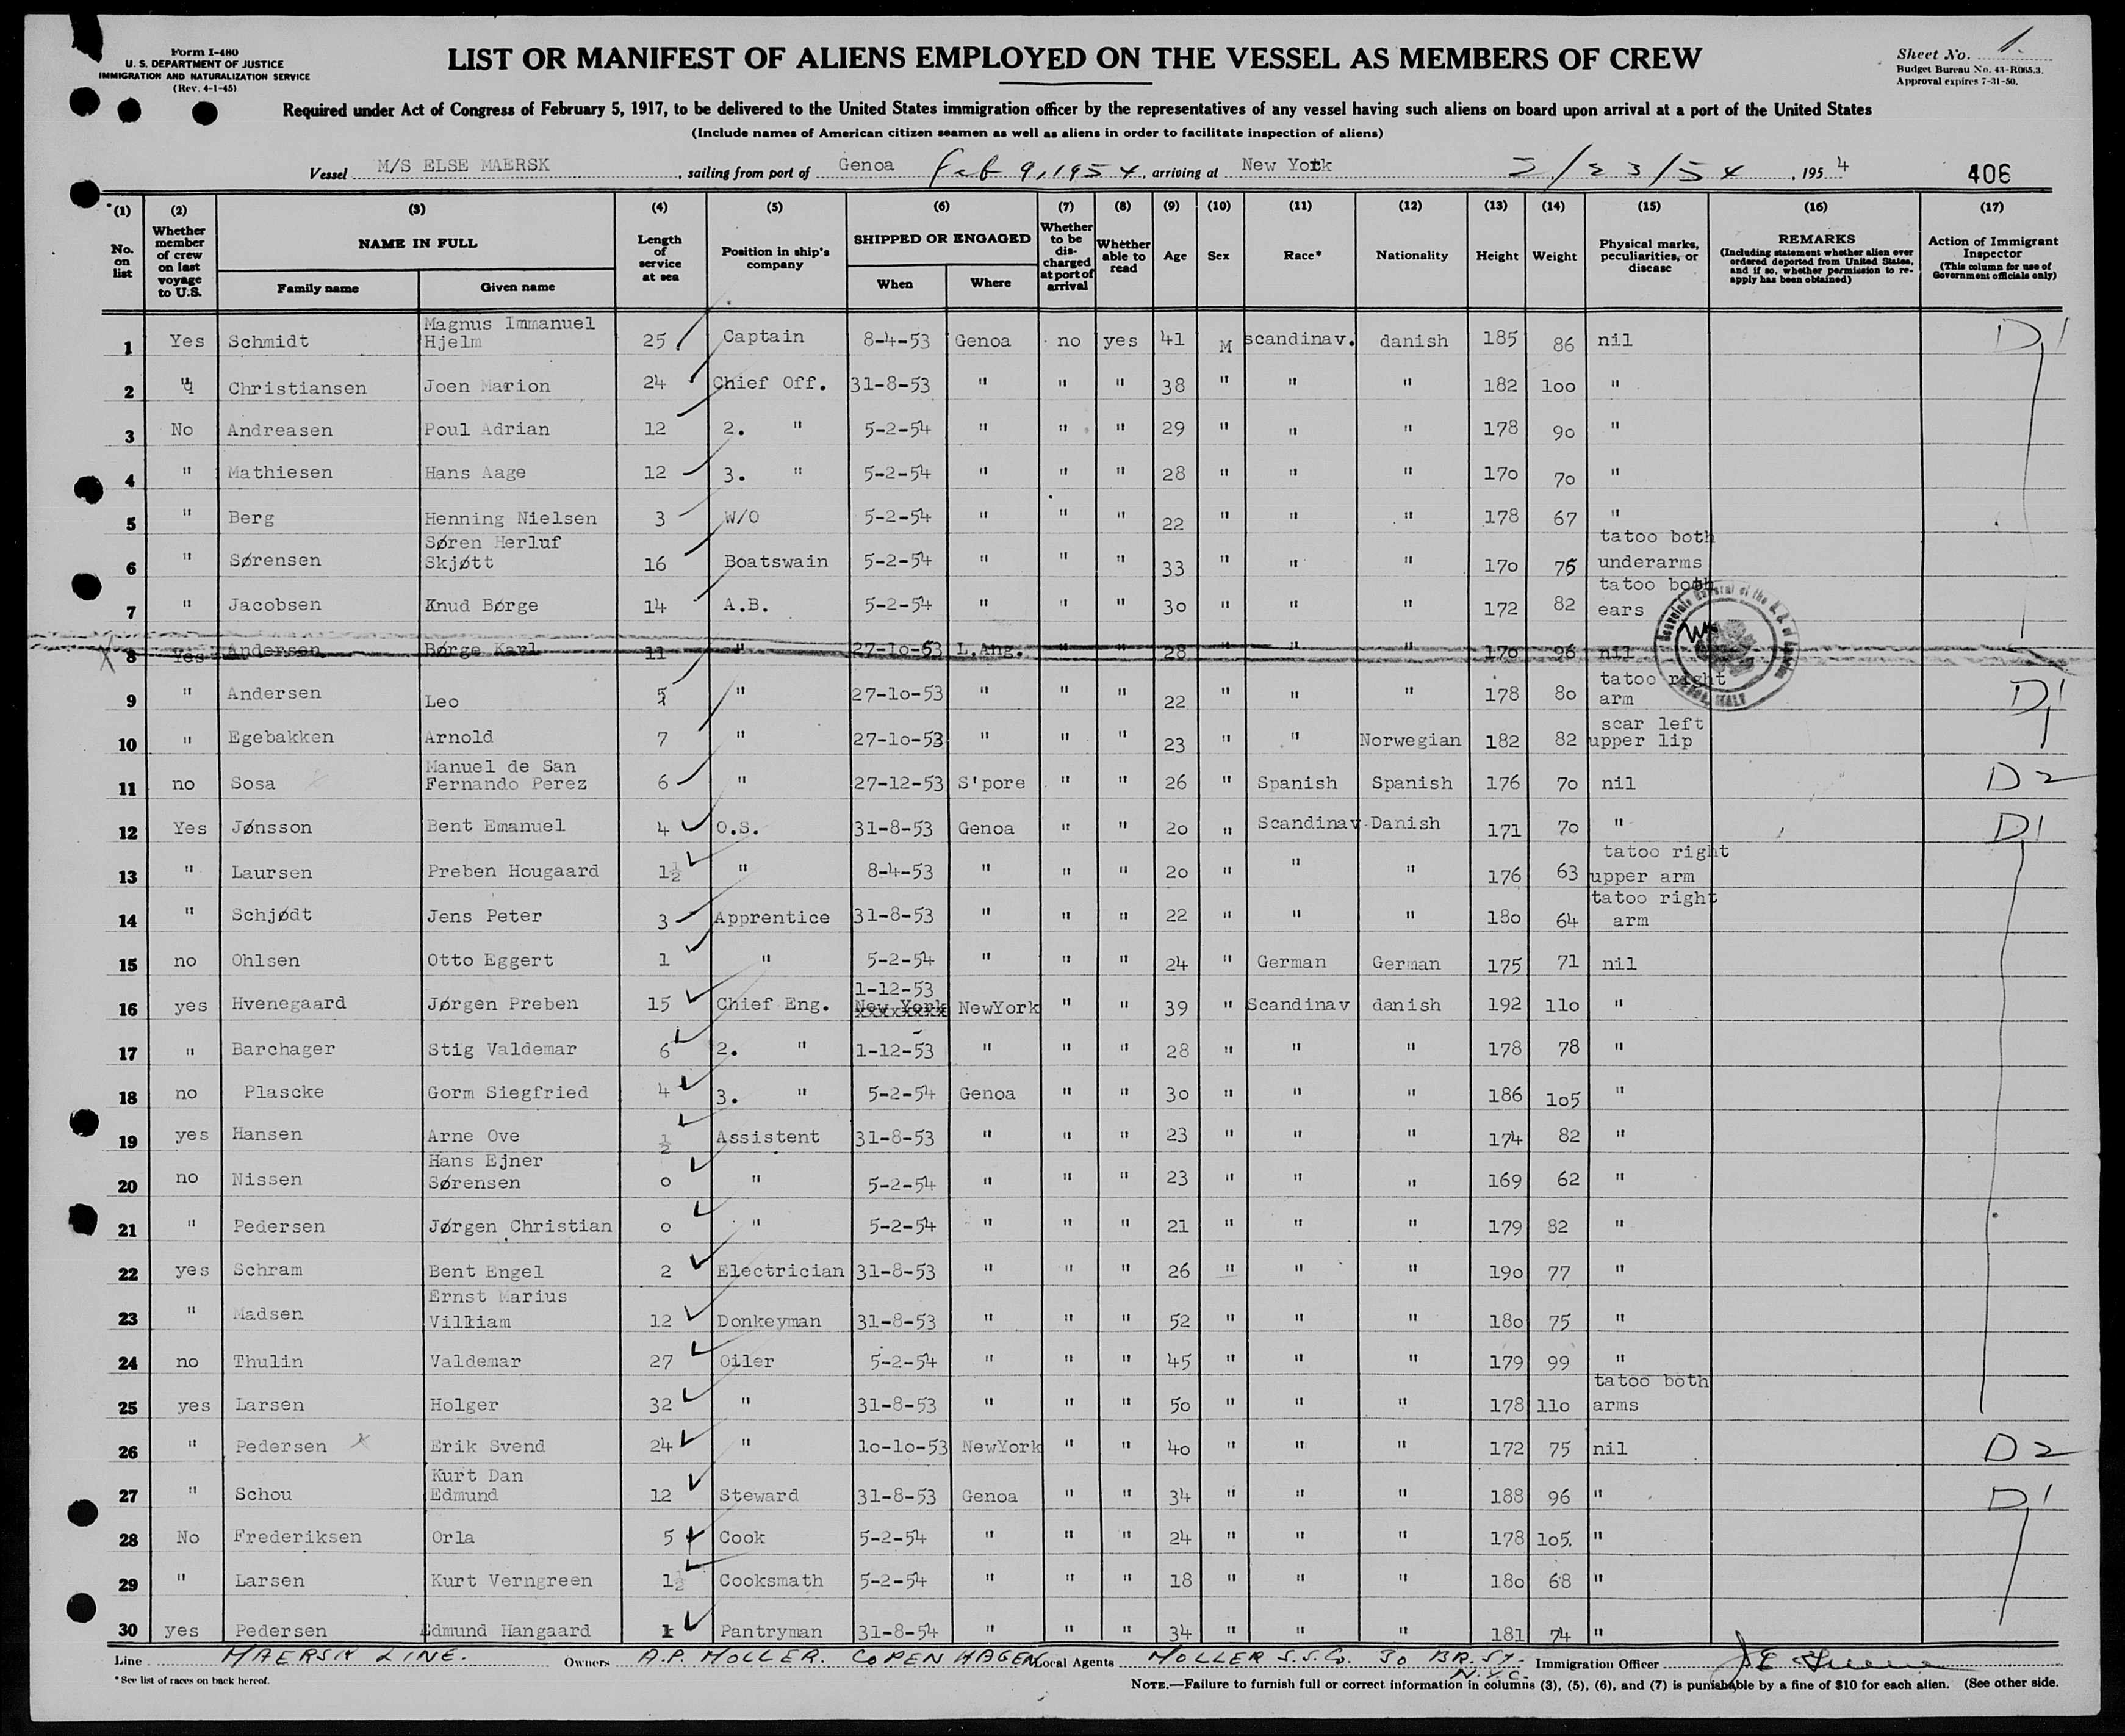 Form I-480
U. S. DEPARTMENT OF JUSTICE
IMMIGRATION AND NATURALIZATION SERVICE
(Rev. 4-1-45)
LIST OR MANIFEST OF ALIENS EMPLOYED ON THE VESSEL AS MEMBERS OF CREW
Sheet No. 1.
Budget Bureau No. 43-R065.3.
Approval expires 7-31-50.
Required under Act of Congress of February 5, 1917, to be delivered to the United States immigration officer by the representatives of any vessel having such aliens on board upon arrival at a port of the United States
(Include names of American citizen seamen as well as aliens in order to facilitate inspection of aliens)
Vessel M/S ELSE MAERSK, sailing from port of Genoa Feb 9, 1954, arriving at New York 2/23/54, 1954 406
(1) (2) (3) (4) (5) (6) (7) (8) (9) (10) (11) (12) (13) (14) (15) (16) (17)
No. on list
Whether member of crew on last voyage to U.S.
NAME IN FULL
Family name Given name
Length of service at sea
Position in ship's company
SHIPPED OR ENGAGED
When Where
Whether to be discharged at port of arrival
Whether able to read
Age
Sex
Race*
Nationality
Height
Weight
Physical marks, peculiarities, or disease
REMARKS
(Including statement whether alien ever ordered deported from United States, and if so, whether permission to re-apply has been obtained)
Action of Immigrant Inspector
(This column for use of Government officials only)
1 Yes Schmidt Magnus Immanuel Hjelm 25 Captain 8-4-53 Genoa no yes 41 M scandinav. danish 185 86 nil D1
2 " Christiansen Joen Marion 24 Chief Off. 31-8-53 " " " 38 " " " 182 100 "
3 No Andreasen Poul Adrian 12 2. " 5-2-54 " " " 29 " " " 178 90 "
4 " Mathiesen Hans Aage 12 3. " 5-2-54 " " " 28 " " " 170 70 "
5 " Berg Henning Nielsen 3 W/O 5-2-54 " " " 22 " " " 178 67 "
6 " Sørensen Søren Herluf Skjøtt 16 Boatswain 5-2-54 " " " 33 " " " 170 75 tatoo both underarms
7 " Jacobsen Knud Børge 14 A.B. 5-2-54 " " " 30 " " " 172 82 tatoo both ears
8 Yes Andersen Børge Karl 11 " 27-10-53 L.Ang. " " 28 " " " 170 96 nil
9 " Andersen Leo 5 " 27-10-53 " " " 22 " " " 178 80 tatoo right arm D1
10 " Egebakken Arnold 7 " 27-10-53 " " " 23 " " Norwegian 182 82 scar left upper lip
11 no Sosa Manuel de San Fernando Perez 6 " 27-12-53 S'pore " " 26 " Spanish Spanish 176 70 nil D2
12 Yes Jønsson Bent Emanuel 4 O.S. 31-8-53 Genoa " " 20 " Scandinav Danish 171 70 " D1
13 " Laursen Preben Hougaard 1½ " 8-4-53 " " " 20 " " " 176 63 tatoo right upper arm
14 " Schjødt Jens Peter 3 Apprentice 31-8-53 " " " 22 " " " 180 64 tatoo right arm
15 no Ohlsen Otto Eggert 1 " 5-2-54 " " " 24 " German German 175 71 nil
16 yes Hvenegaard Jørgen Preben 15 Chief Eng. 1-12-53 New York NewYork " " 39 " Scandinav danish 192 110 "
17 " Barchager Stig Valdemar 6 2. " 1-12-53 " " " 28 " " " 178 78 "
18 no Plascke Gorm Siegfried 4 3. " 5-2-54 Genoa " " 30 " " " 186 105 "
19 yes Hansen Arne Ove ½ Assistent 31-8-53 " " " 23 " " " 174 82 "
20 no Nissen Hans Ejner Sørensen 0 " 5-2-54 " " " 23 " " " 169 62 "
21 " Pedersen Jørgen Christian 0 " 5-2-54 " " " 21 " " " 179 82 "
22 yes Schram Bent Engel 2 Electrician 31-8-53 " " " 26 " " " 190 77 "
23 " Madsen Ernst Marius Villiam 12 Donkeyman 31-8-53 " " " 52 " " " 180 75 "
24 no Thulin Valdemar 27 Oiler 5-2-54 " " " 45 " " " 179 99 "
25 yes Larsen Holger 32 " 31-8-53 " " " 50 " " " 178 110 tatoo both arms
26 " Pedersen Erik Svend 24 " 10-10-53 NewYork " " 40 " " " 172 75 nil D2
27 " Schou Kurt Dan Edmund 12 Steward 31-8-53 Genoa " " 34 " " " 188 96 " D1
28 No Frederiksen Orla 5 Cook 5-2-54 " " " 24 " " " 178 105. "
29 " Larsen Kurt Verngreen 1½ Cooksmath 5-2-54 " " " 18 " " " 180 68 "
30 yes Pedersen Edmund Hangaard 1 Pantryman 31-8-54 " " " 34 " " " 181 74 "
Line MAERSK LINE. Owners A.P. MOLLER. COPENHAGEN Local Agents MOLLER S.S.Co. 30 BR. ST. N.Y.C. Immigration Officer
*See list of races on back hereof.
NOTE.—Failure to furnish full or correct information in columns (3), (5), (6), and (7) is punishable by a fine of $10 for each alien. (See other side.